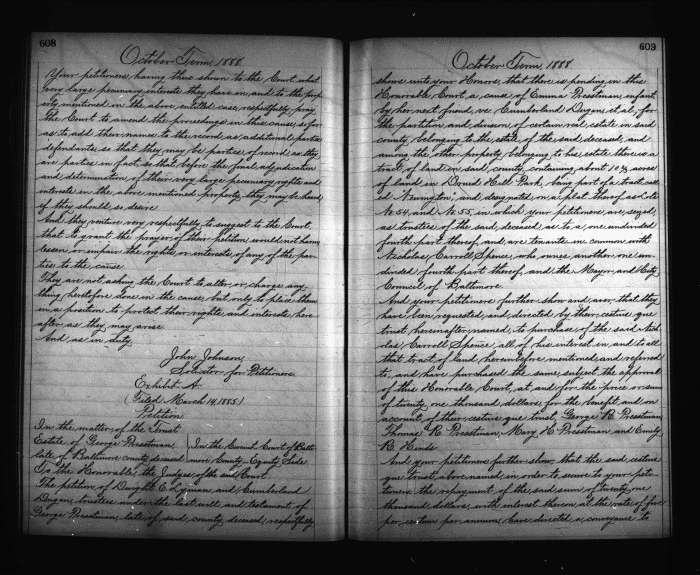 608
October Term, 1888.
Your petitioners having thus shown to the Court what
very large pecuniary interests they have in and to the prop
erty mentioned in the above entitled case, respectfully pray
the Court to amend the proceedings in this cause so far
as to add their names to the record as additional parties
defendants so that they may be parties of record as they
are parties in fact, so that before the final adjudication
and determination of their very large pecuniary rights and
interests in the above mentioned property they may be heard
if they should so desire.
And they venture very respectfully to suggest to the Court,
that to grant the prayer of their petition would not harm
lessen or impair the rights or interests of any of the par
ties to the cause.
They are not asking the Court to alter, or change any
thing heretofore done in the cause, but only to place them
in a position to protect their rights and interests here
after as they may arise.
And as in duty
John Johnson,
Solicitor for Petitioners
Exhibit A.
(Filed March 14, 1885.)
Petition
In the matter of the Trust
Estate of George Presstman, } In the Circuit Court of Balti
late of Baltimore county deceased more County, Equity Side
To the Honorable, the Judges of the said Court.
The petition of Dwight E. Lyman and Cumberland
Dugan, trustees under the last will and testament of
George Presstman, late of said county, deceased, respectfully
609
October Term, 1888.
shows unto your Honors, that there is pending in this
Honorable Court a cause of Emma Presstman, infant
by her next friend, vs Cumberland Dugan et al, for
the partition and division of certain real estate in said
county belonging to the estate of the said deceased and
among the other property belonging to his estate there is a
tract of land in said county containing about 10¾ acres
of land in Druid Hill Park, being part of a tract call
ed Newington, and designated on a plat thereof as Lots
No 54, and No 55, in which your petitioners are seized,
as trustees of the said, deceased, as to a, one undivided
fourth part thereof, and are tenants in common with
Nicholas, Carroll Spence, who owns another one un-
divided fourth part thereof, and the Mayor and City
Council of Baltimore.
And your petitioners further show and aver that they
have been requested, and directed by their cestius que
trust hereinafter named, to purchase of the said Nich
olas, Carroll Spence, all of his interest in, and to all
that tract of land hereinbefore mentioned, and referred
to, and have purchased the same, subject the approval
of this Honorable Court, at, and for the price or sum
of twenty one thousand dollars, for the benefit, and on
account of their cestius que trust, George R. Presstman,
Thomas R. Presstman, Mary H. Presstman and Emily
R. Hinds.
And your petitioners further show that the said cestius
que trust above named in order to secure to your peti-
tioners the repayment of the said sum of twenty one
thousand dollars, with interest thereon at the rate of five
per centum per annum, have directed a conveyance to